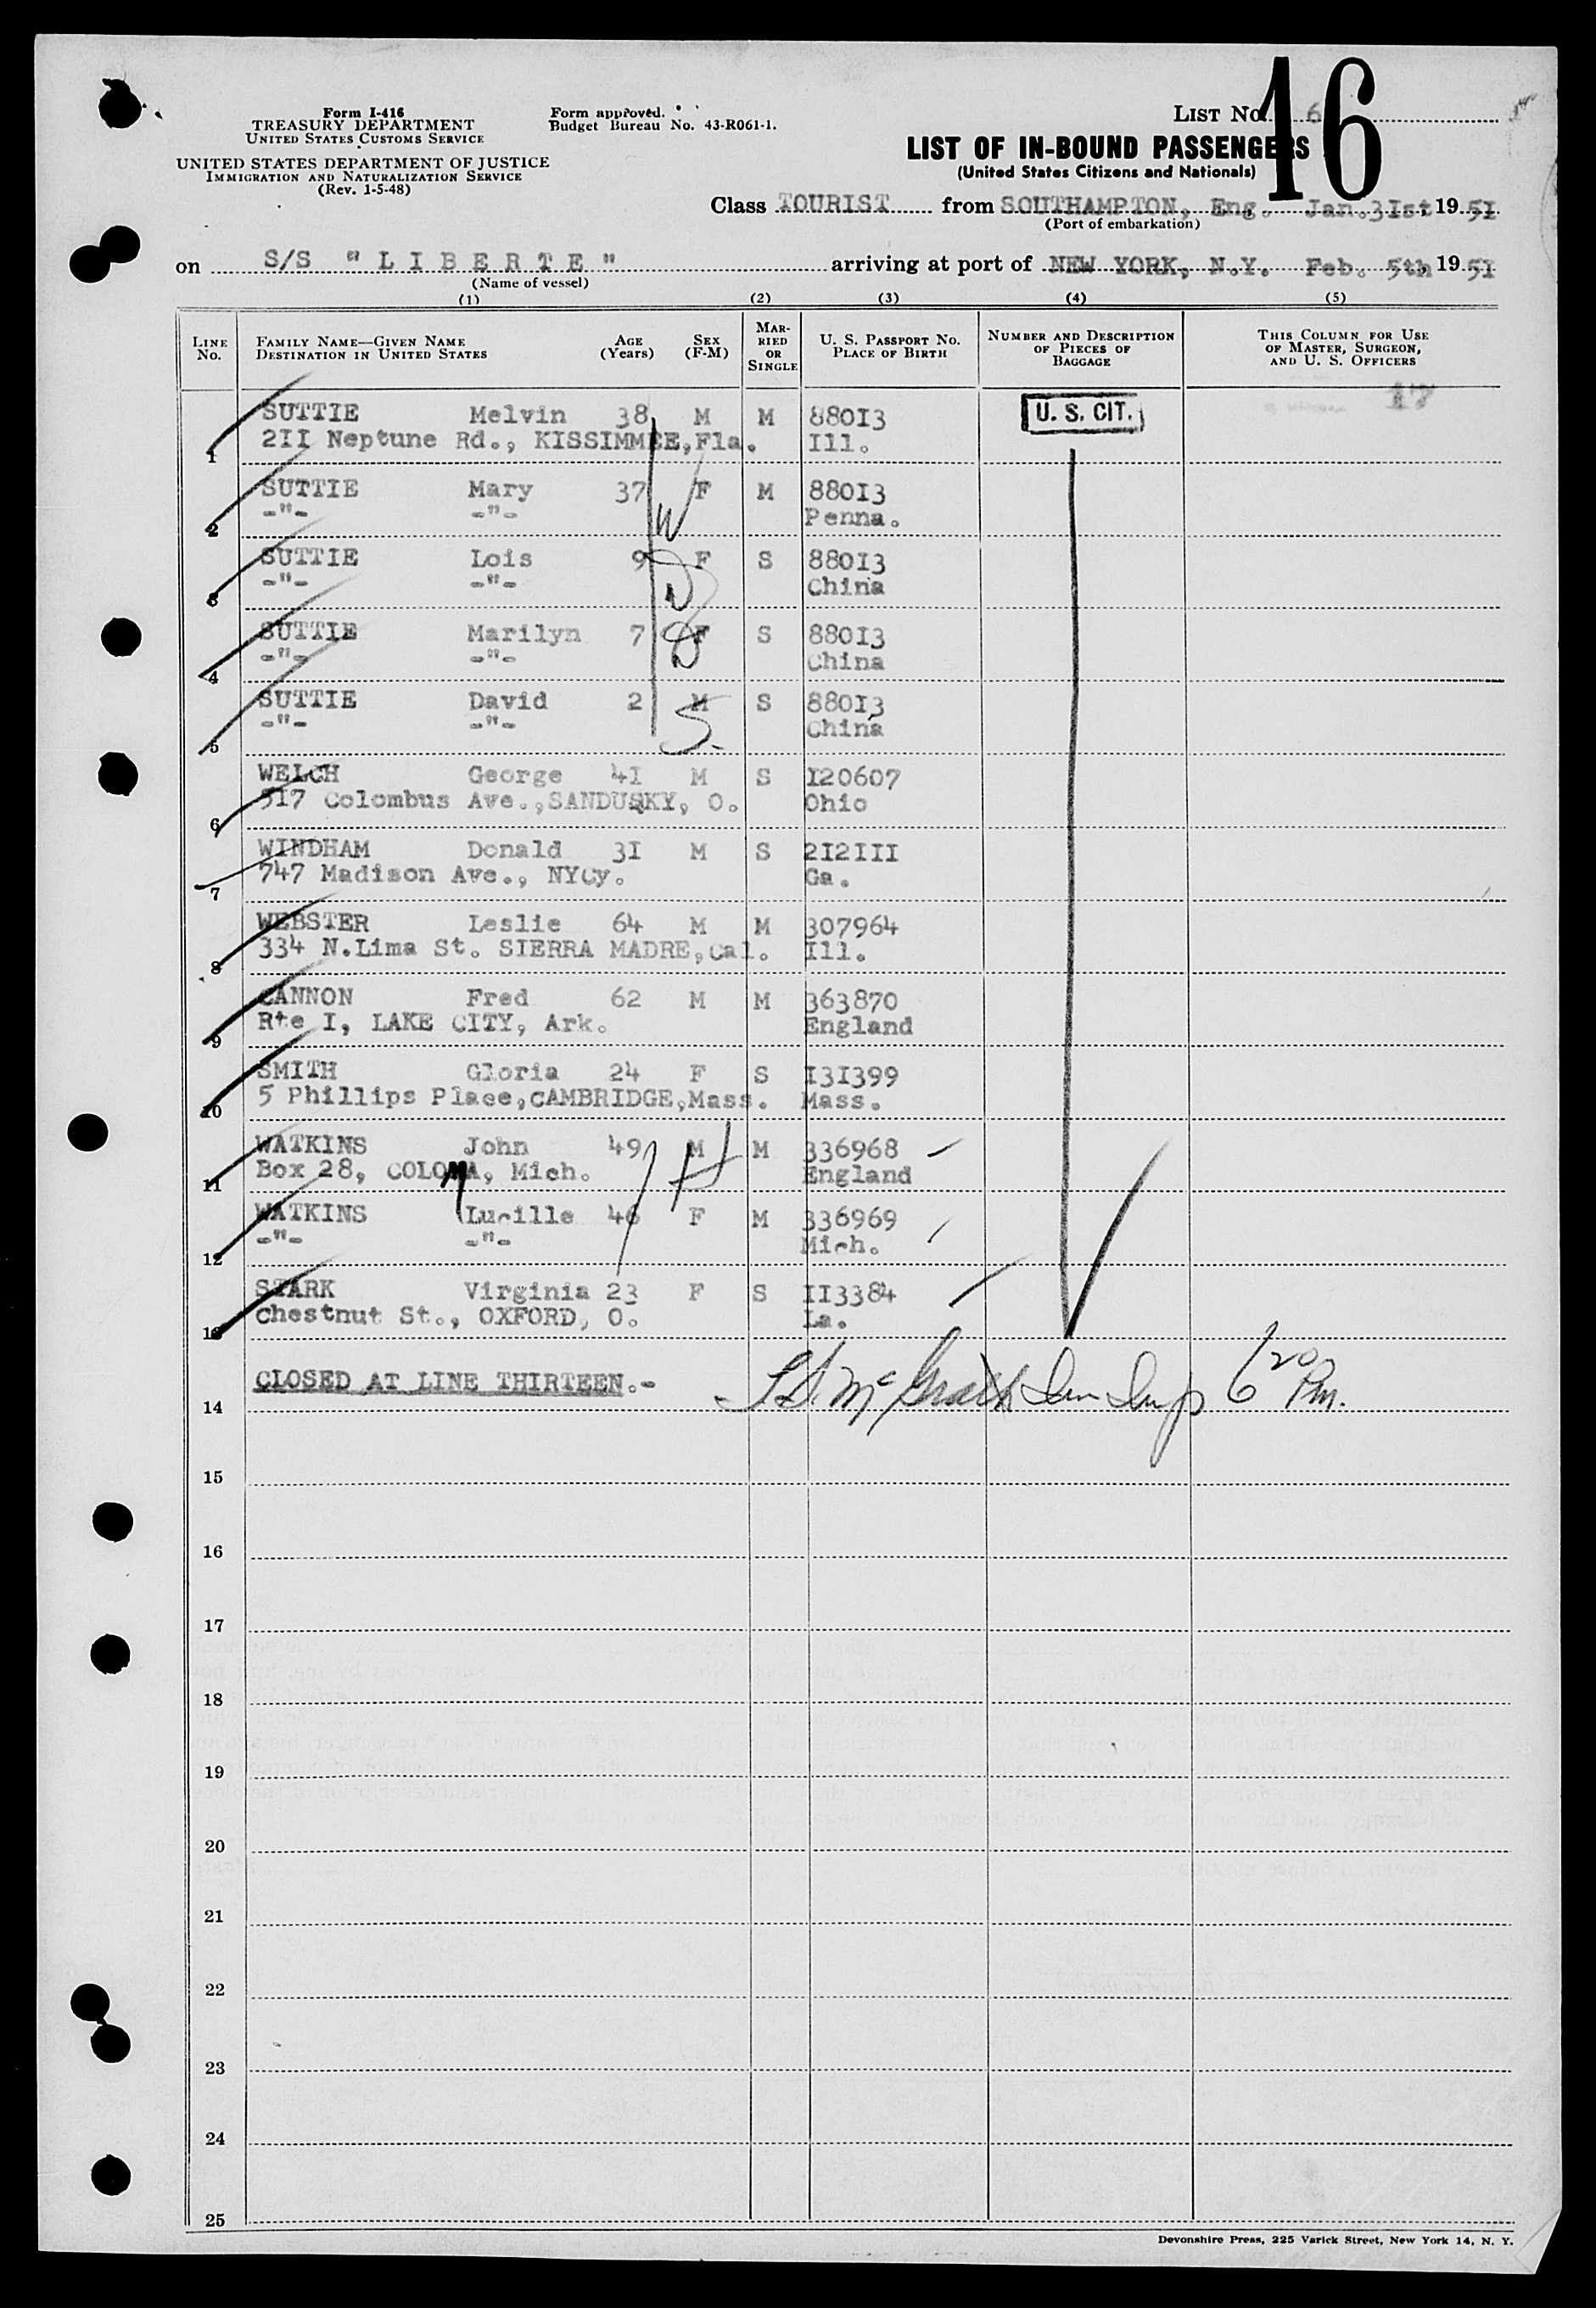 Form I-416
TREASURY DEPARTMENT
UNITED STATES CUSTOMS SERVICE
UNITED STATES DEPARTMENT OF JUSTICE
IMMIGRATION AND NATURALIZATION SERVICE
(Rev. 1-5-48)
Form approved.
Budget Bureau No. 43-R061-1.
LIST No. 6
16
LIST OF IN-BOUND PASSENGERS
(United States Citizens and Nationals)
Class TOURIST from SOUTHAMPTON, Eng. Jan.3Ist, 19 5I
(Port of embarkation)
on S/S "LIBERTE" arriving at port of NEW YORK, N.Y. Feb. 5th, 19 5I
(Name of vessel)
(1) (2) (3) (4) (5)
LINE No. FAMILY NAME—GIVEN NAME DESTINATION IN UNITED STATES AGE (Years) SEX (F-M) MARRIED OR SINGLE U. S. PASSPORT No. PLACE OF BIRTH NUMBER AND DESCRIPTION OF PIECES OF BAGGAGE THIS COLUMN FOR USE OF MASTER, SURGEON, AND U. S. OFFICERS
17
SUTTIE Melvin 38 M M 88OI3 U. S. CIT.
1 2II Neptune Rd., KISSIMMEE,Fla. Ill.
SUTTIE Mary 37 F M 88OI3
2 -"- -"- W Penna.
SUTTIE Lois 9 F S 88OI3
3 -"- -"- D China
SUTTIE Marilyn 7 F S 88OI3
4 -"- -"- D China
SUTTIE David 2 M S 88OI3
5 -"- -"- S. China
WELCH George 4I M S I20607
6 517 Colombus Ave.,SANDUSKY, O. Ohio
WINDHAM Donald 3I M S 2I2III
7 747 Madison Ave., NYCy. Ga.
WEBSTER Leslie 64 M M 307964
8 334 N.Lima St. SIERRA MADRE,Cal. Ill.
CANNON Fred 62 M M 363870
9 Rte I, LAKE CITY, Ark. England
SMITH Gloria 24 F S I3I399
10 5 Phillips Place,CAMBRIDGE,Mass. Mass.
WATKINS John 49 M M 336968
11 Box 28, COLOMA, Mich. England
WATKINS Lucille 46 F M 336969
12 -"- -"- Mich.
STARK Virginia 23 F S II3384
13 Chestnut St., OXFORD, O. La.
CLOSED AT LINE THIRTEEN.-
McGrath Imm Insp 6 20 P.M.
14
15
16
17
18
19
20
21
22
23
24
25
Devonshire Press, 225 Varick Street, New York 14, N. Y.